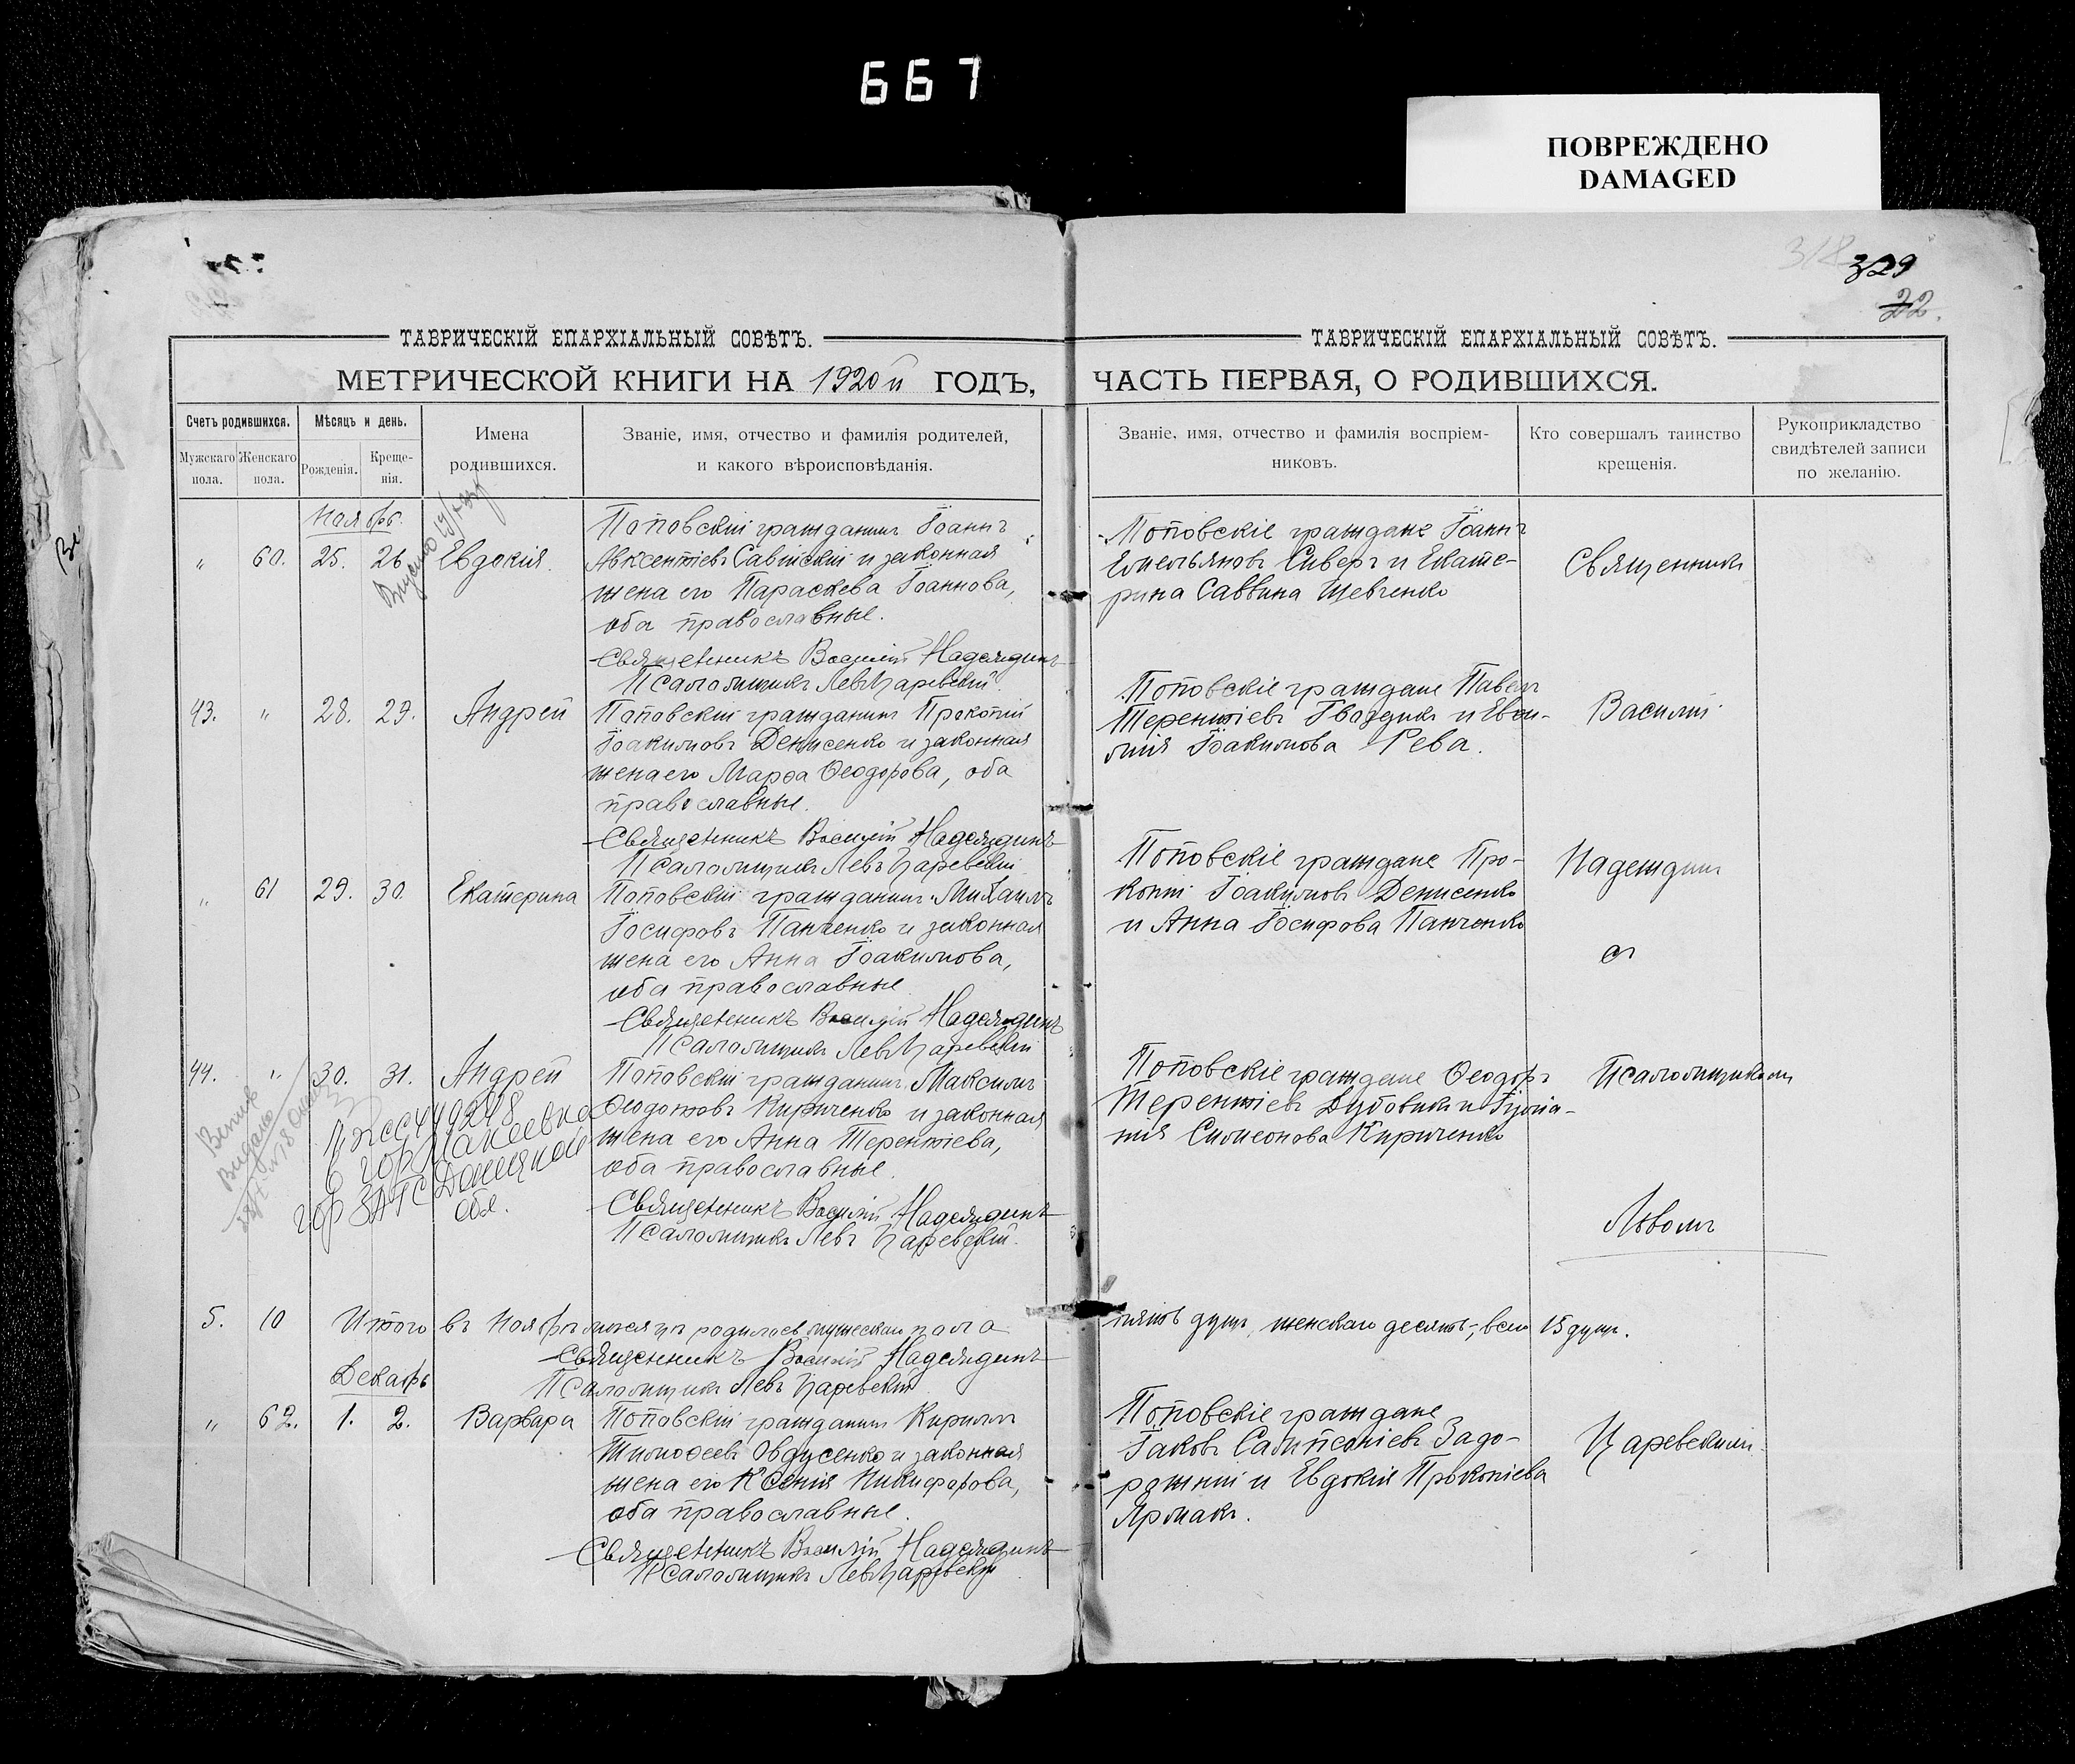 667
ПОВРЕЖДЕНО
DAMAGED
318
329
22.
ТАВРИЧЕСКІЙ ЕПАРХІАЛЬНЫЙ СОВѢТЪ.
МЕТРИЧЕСКОЙ КНИГИ НА 1920й ГОДЪ,
Счетъ родившихся.
Мужскаго пола.
Женскаго пола.
Мѣсяцъ и день.
Рожденія.
Креще-
нія.
Имена
родившихся.
Званіе, имя, отчество и фамилія родителей,
и какого вѣроисповѣданія.
ТАВРИЧЕСКІЙ ЕПАРХІАЛЬНЫЙ СОВѢТЪ.
ЧАСТЬ ПЕРВАЯ, О РОДИВШИХСЯ.
Званіе, имя, отчество и фамилія воспріем-
никовъ.
Кто совершалъ таинство
крещенія.
Рукоприкладство
свидѣтелей записи
по желанію.
Ноябрь.
" 60. 25. 26 Евдокія.
Поповскій гражданинъ Іоаннъ
Авксентіевъ Савійскій и законная
жена его Параскева Іоаннова,
оба православные.
Священникъ Василій Надеждинъ
Псаломщикъ Левъ Царевскій.
Поповскіе граждане Іоаннъ
Емельяновъ Сиверъ и Екате-
рина Саввина Шевченко
Священникъ
43. " 28. 29. Андрей
Поповскій гражданинъ Прокопій
Іоакимовъ Денисенко и законная
жена его Марѳа Ѳеодорова, оба
православные.
Священникъ Василій Надеждинъ
Псаломщикъ Левъ Царевскій
Поповскіе граждане Павелъ
Терентіевъ Гвоздикъ и Евѳи-
мія Іоакимова Рева.
Василій
" 61 29. 30. Екатерина
Поповскій гражданинъ Михаилъ
Іосифовъ Панченко и законная
жена его Анна Іоакимова,
оба православные
Священникъ Василій Надеждинъ
Псаломщикъ Левъ Царевскій
Поповскіе граждане Про-
копій Іоакимовъ Денисенко
и Анна Іосифова Панченко
Надеждинъ
съ
44. " 30. 31. Андрей
Поповскій гражданинъ Максимъ
Ѳеодотовъ Кириченко и законная
жена его Анна Терентіева,
оба православные.
Священникъ Василій Надеждинъ
Псаломщикъ Левъ Царевскій.
449248
в гор Макеевка
гор ЗАГС Донецкой
обл.
Выдано
Поповскіе граждане Ѳеодоръ
Терентіевъ Дубовикъ и
Симеонова Кириченко
Псаломщикомъ
Львомъ
5. 10 Итого въ Ноябрѣ мѣсяцѣ родилось мужескаго пола
пять душъ, женскаго десять, всего 15 душъ.
Священникъ Василій Надеждинъ
Псаломщикъ Левъ Царевскій
Декабрь
" 62. 1. 2. Варвара
Поповскій гражданинъ Кириллъ
Тимоѳеевъ Овдусенко и законная
жена его Ксенія Никифорова,
оба православные.
Священникъ Василій Надеждинъ
Псаломщикъ Левъ Царевскій
Поповскіе граждане
Іаковъ Сампсоніевъ Задо-
рожній и Евдокія Прокопіева
Ярмакъ.
Царевскимъ.